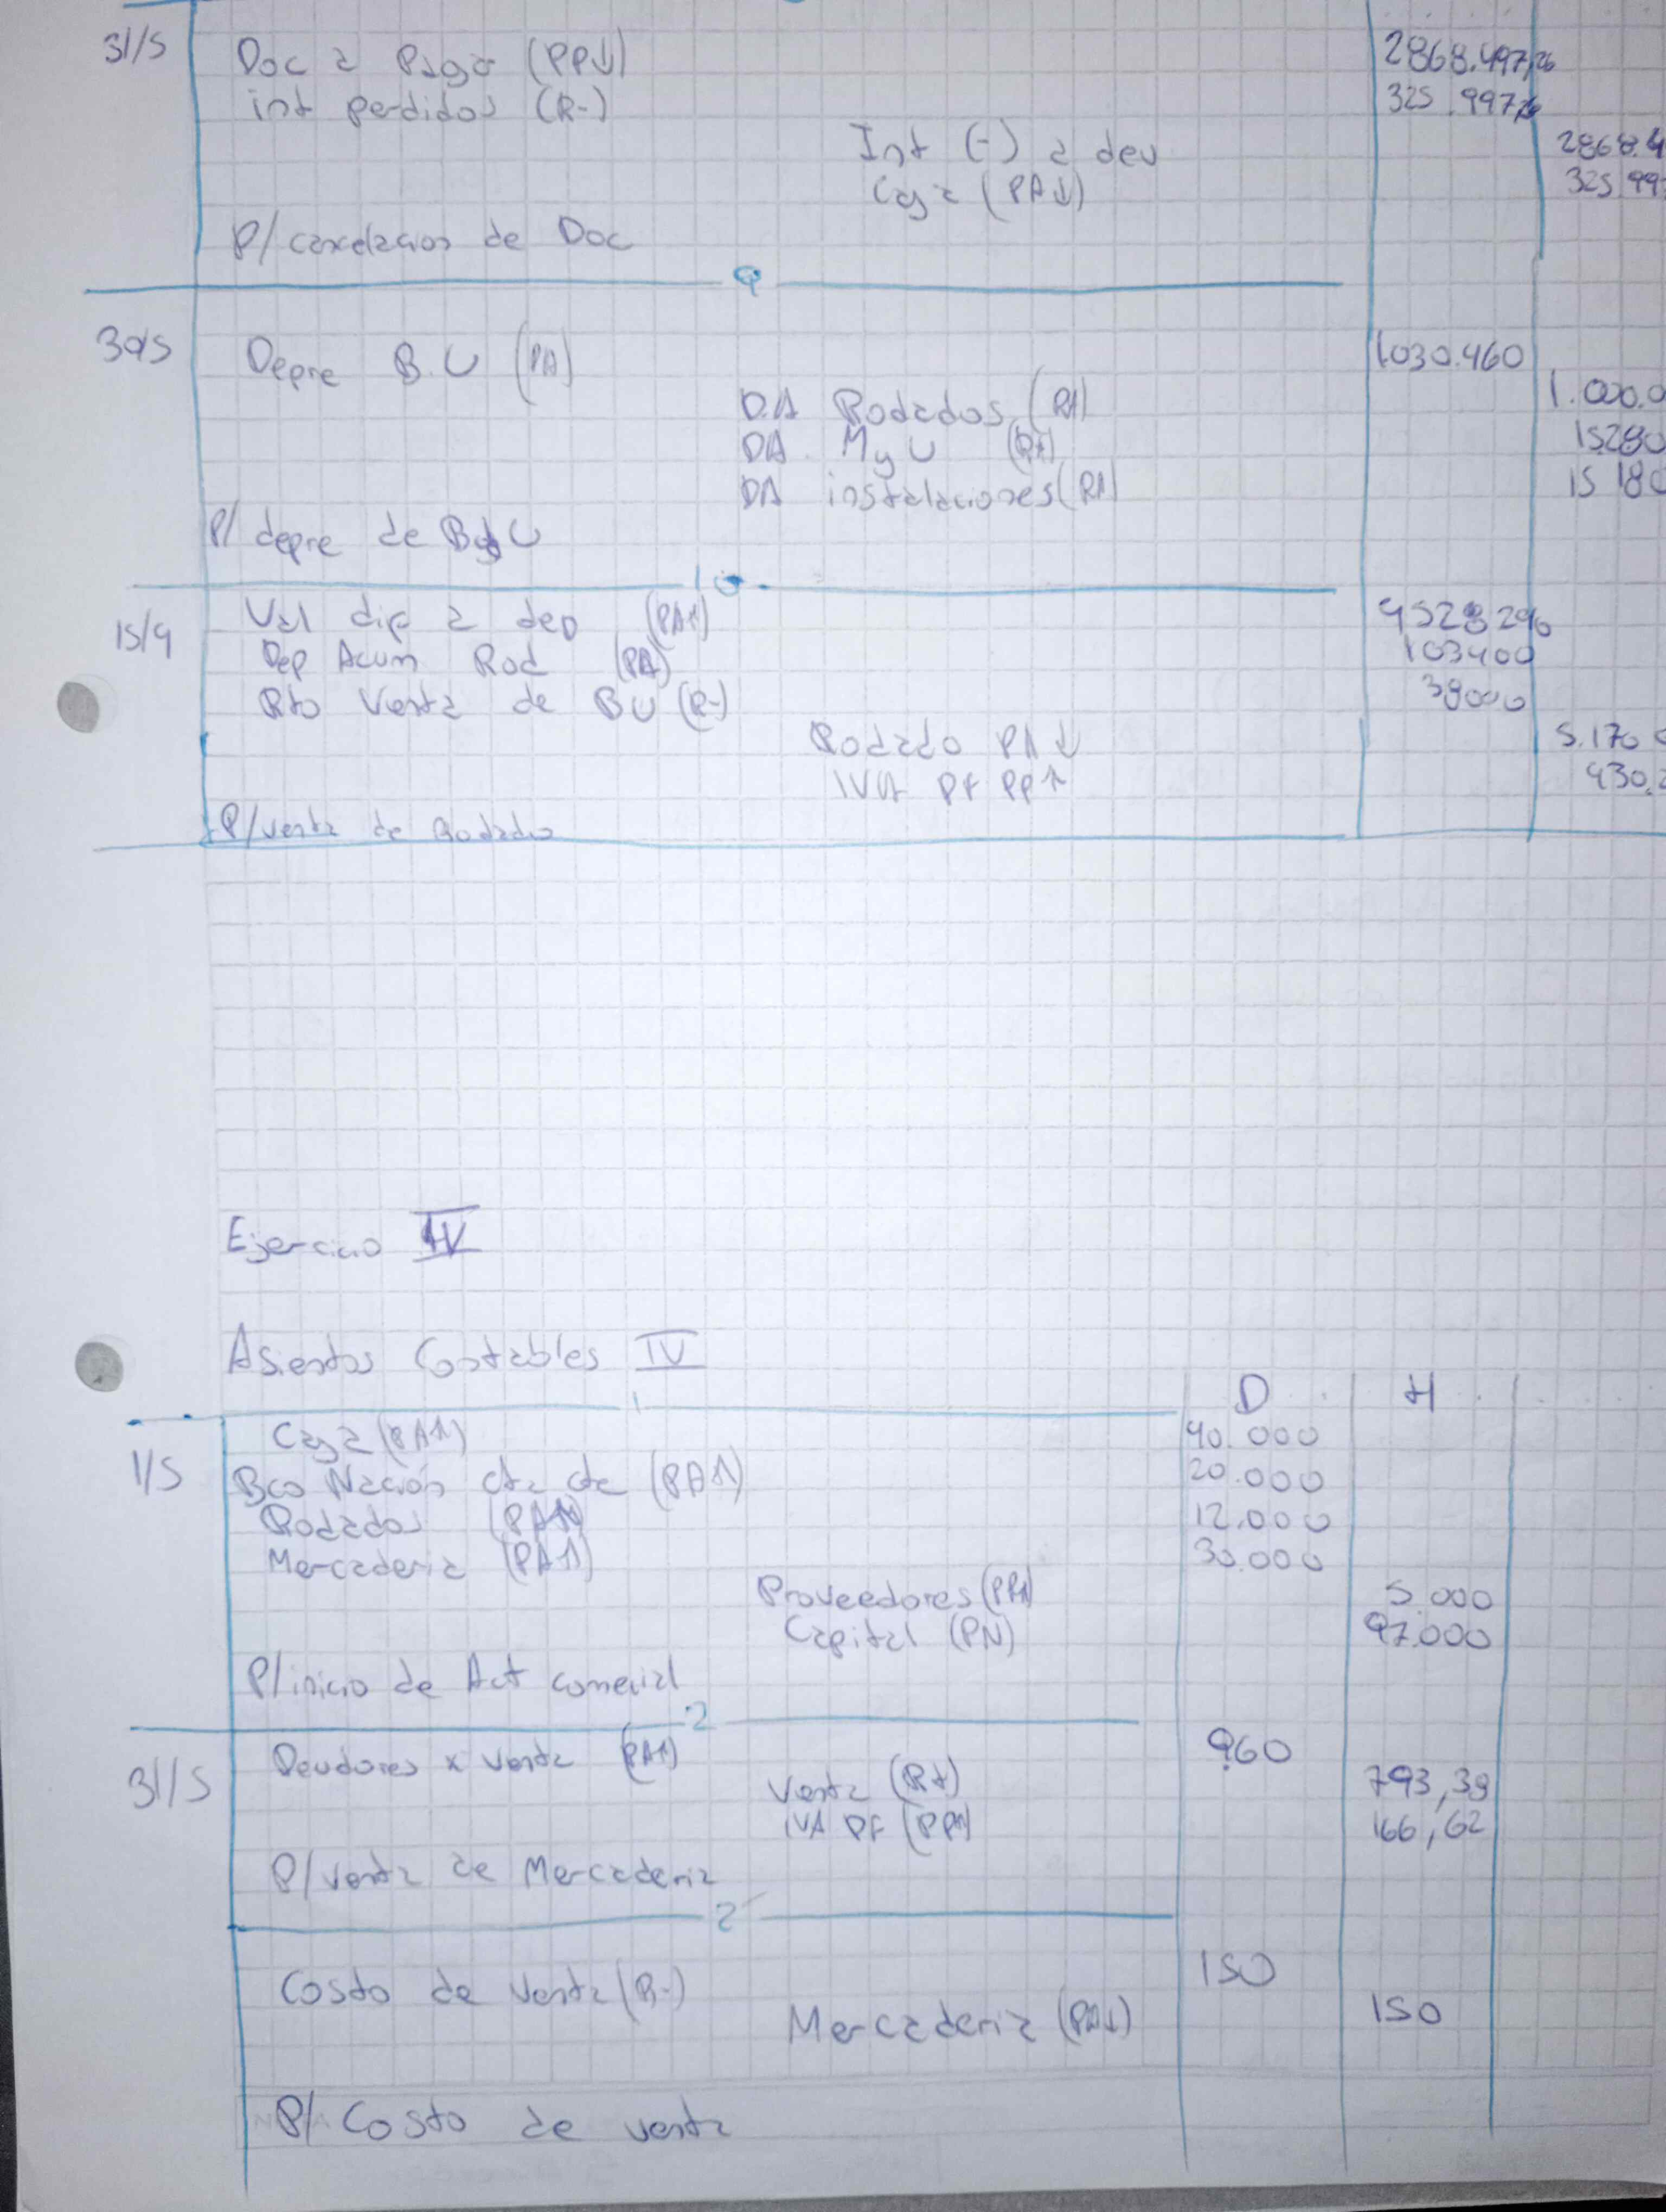 31/5 Doc a Pagar (PP↓) 2868.497,26
int perdidos (R-) 325.997,26
Int (-) a dev 2868.4
Caja (PA↓) 325.99
P/ cancelacion de Doc
9
30/5 Depre B.U (PA) 1030.460
DA Rodados (PA) 1.000.0
DA MyU (PA) 15280
DA instalaciones (PA) 15180
P/ depre de B U
10
15/4 Val dif a dep (PA↑) 4528290
Dep Acum Rod (PA) 103400
Rto Venta de BU (R-) 38000
Rodado PA↓ 5.170
IVA DF PP↑ 430.2
P/ venta de Rodado
Ejercicio IV
Asientos Contables IV
D H
1
1/5 Caja (PA↑) 40.000
Bco Nación cta cte (PA↑) 20.000
Rodados (PA↑) 12.000
Mercaderia (PA↑) 30.000
Proveedores (PP↑) 5.000
Capital (PN) 97.000
P/ inicio de Act comercial
2
31/5 Deudores x venta (PA↑) 960
Venta (R+) 793,38
IVA DF (PP↑) 166,62
P/ venta de Mercaderia
2
Costo de Venta (R-) 150
Mercaderia (PA↓) 150
P/ Costo de venta